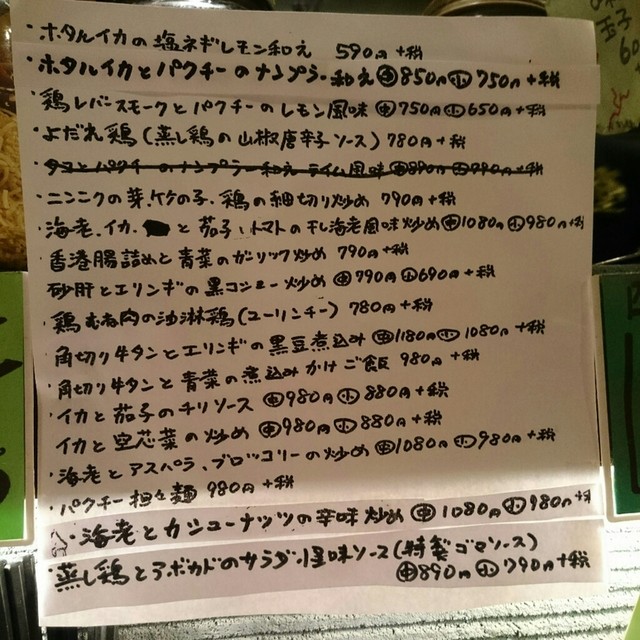 ・ホタルイカの塩ネギレモン和え 590円+税
・ホタルイカとパクチーのナンプラー和え㊥850円㊙750円+税
・鶏レバースモークとパクチーのレモン風味 ㊥750円㊙650円+税
・よだれ鶏(蒸し鶏の山椒唐辛子ソース) 780円+税
・タコとパクチーのナンプラー和えライム風味㊥890円 790円+税
・ニンニクの芽、竹の子、鶏の細切り炒め 790円+税
・海老、イカ、と茄子、トマトの干し海老風味炒め㊥1080円小980円+税
・香港腸詰めと青菜のガーリック炒め 790円+税
砂肝とエリンギの黒コショー炒め ㊥790円小690円+税
・鶏むね肉の油淋鶏(ユーリンチー) 780円+税
・角切り牛タンとエリンギの黒豆煮込み ㊥1180円小1080円+税
・角切り牛タンと青菜の煮込みかけご飯 980円+税
・イカと茄子のチリソース ㊥980円小880円+税
イカと空芯菜の炒め ㊥980円小880円+税
・海老とアスパラ、ブロッコリーの炒め ㊥1080円小980円+税
・パクチー担々麺 980円+税
・海老とカシューナッツの辛味炒め ㊥1080円小980円+
・蒸し鶏とアボカドのサラダ・怪味ソース(特製ゴマソース)
㊥890円小790円+税
玉子